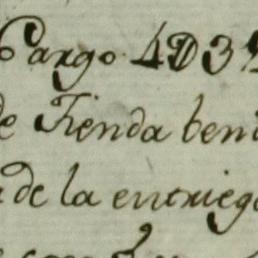 Cargo 4D3
de Tienda ben
de la entrieg